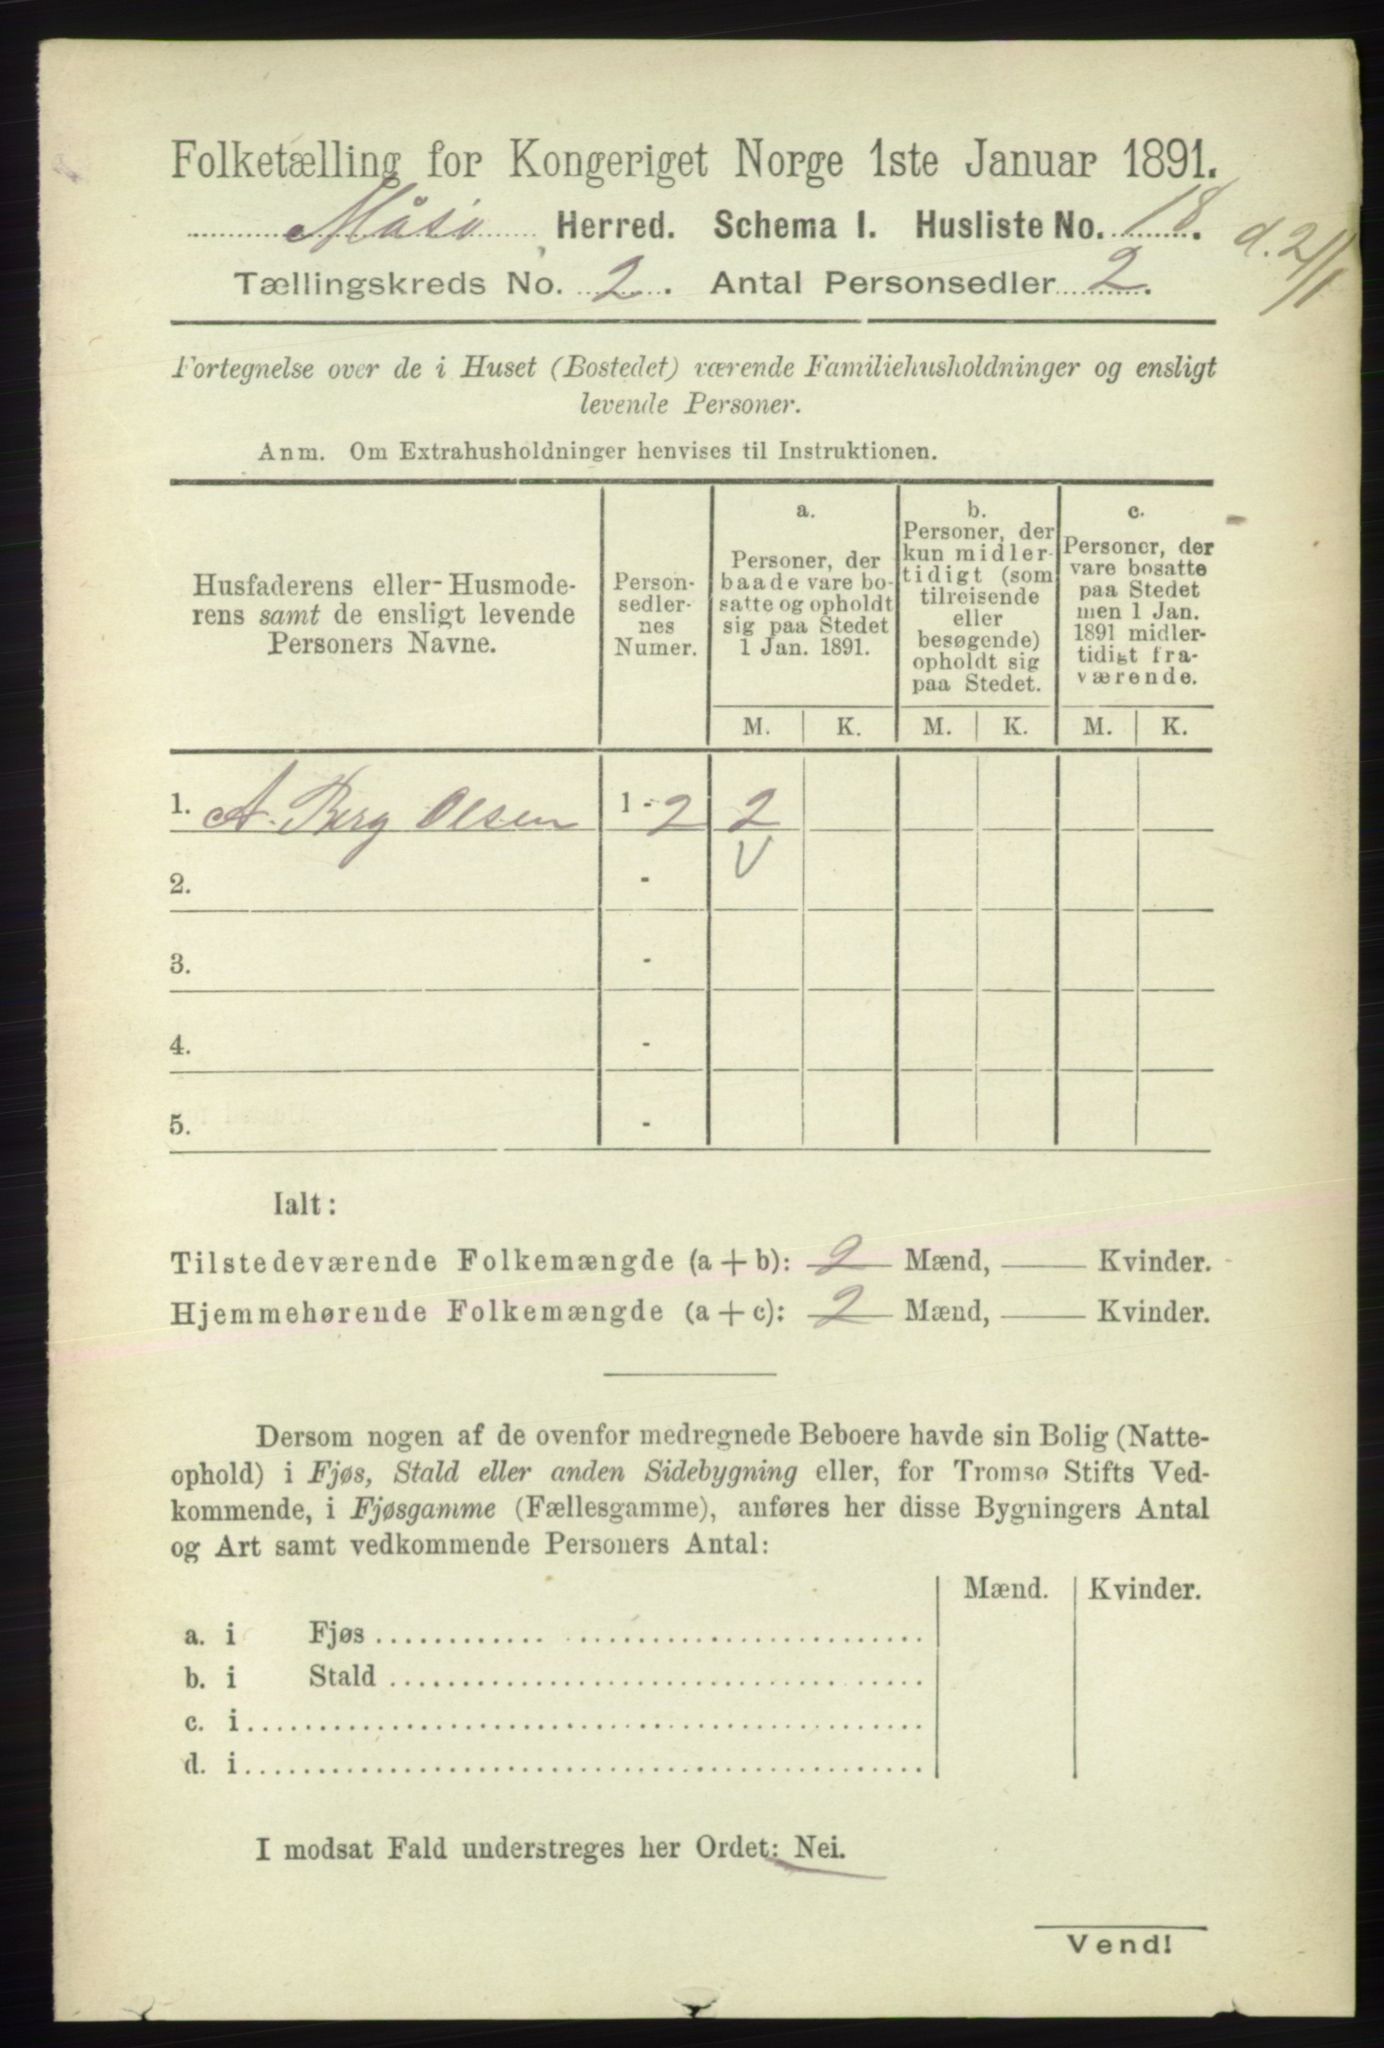 Folketælling for Kongeriget Norge 1ste Januar 1891.
Måsø Herred. Schema I. Husliste No. 18. d. 2/1
Tællingskreds No. 2. Antal Personsedler 2.
Fortegnelse over de i Huset (Bostedet) værende Familiehusholdninger og ensligt
levende Personer.
Anm. Om Extrahusholdninger henvises til Instruktionen.
Husfaderens eller Husmode-
rens samt de ensligt levende
Personers Navne.
Person-
sedler-
nes
Numer.
a.
Personer, der
baade vare bo-
satte og opholdt
sig paa Stedet
1 Jan. 1891.
b.
Personer, der
kun midler-
tidigt (som
tilreisende
eller
besøgende)
opholdt sig
paa Stedet.
c.
Personer, der
vare bosatte
paa Stedet
men 1 Jan.
1891 midler-
tidigt fra-
værende.
M. K. M. K. M. K.
1. A. Berg Olsen 1 - 2 2
V
2. -
3. -
4. -
5. -
Ialt:
Tilstedeværende Folkemængde (a + b): 2 Mænd, Kvinder.
Hjemmehørende Folkemængde (a + c): 2 Mænd, Kvinder.
Dersom nogen af de ovenfor medregnede Beboere havde sin Bolig (Natte-
ophold) i Fjøs, Stald eller anden Sidebygning eller, for Tromsø Stifts Ved-
kommende, i Fjøsgamme (Fællesgamme), anføres her disse Bygningers Antal
og Art samt vedkommende Personers Antal:
Mænd. Kvinder.
a. i Fjøs
b. i Stald
c. i
d. i
I modsat Fald understreges her Ordet: Nei.
Vend!